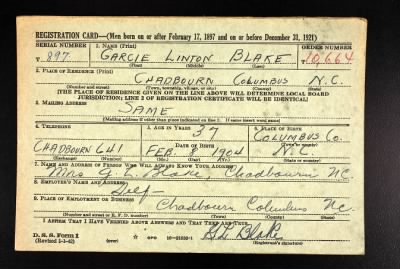 REGISTRATION CARD—(Men born on or after February 17, 1897 and on or before December 31, 1921)
SERIAL NUMBER 1. NAME (Print) ORDER NUMBER
T 897. GARCIE LINTON BLAKE 10,664
(First) (Middle) (Last)
2. PLACE OF RESIDENCE (Print)
CHADBOURN COLUMBUS N.C.
(Number and street) (Town, township, village, or city) (County) (State)
[THE PLACE OF RESIDENCE GIVEN ON THE LINE ABOVE WILL DETERMINE LOCAL BOARD
JURISDICTION; LINE 2 OF REGISTRATION CERTIFICATE WILL BE IDENTICAL]
3. MAILING ADDRESS
SAME
[Mailing address if other than place indicated on line 2. If same insert word same]
4. TELEPHONE 5. AGE IN YEARS 6. PLACE OF BIRTH
37 COLUMBUS CO.
DATE OF BIRTH (Town or county)
CHADBOURN C41 FEB. 8 1904 N.C.
(Exchange) (Number) (Mo.) (Day) (Yr.) (State or country)
7. NAME AND ADDRESS OF PERSON WHO WILL ALWAYS KNOW YOUR ADDRESS
Mrs G. L. Blake, Chadbourn NC.
8. EMPLOYER'S NAME AND ADDRESS
Self
9. PLACE OF EMPLOYMENT OR BUSINESS
Chadbourn Columbus NC
(Number and street or R. F. D. number) (Town) (County) (State)
I AFFIRM THAT I HAVE VERIFIED ABOVE ANSWERS AND THAT THEY ARE TRUE.
D. S. S. Form 1
(Revised 1-1-42) (over) GPO 16—21630-1 G L Blake
(Registrant's signature)